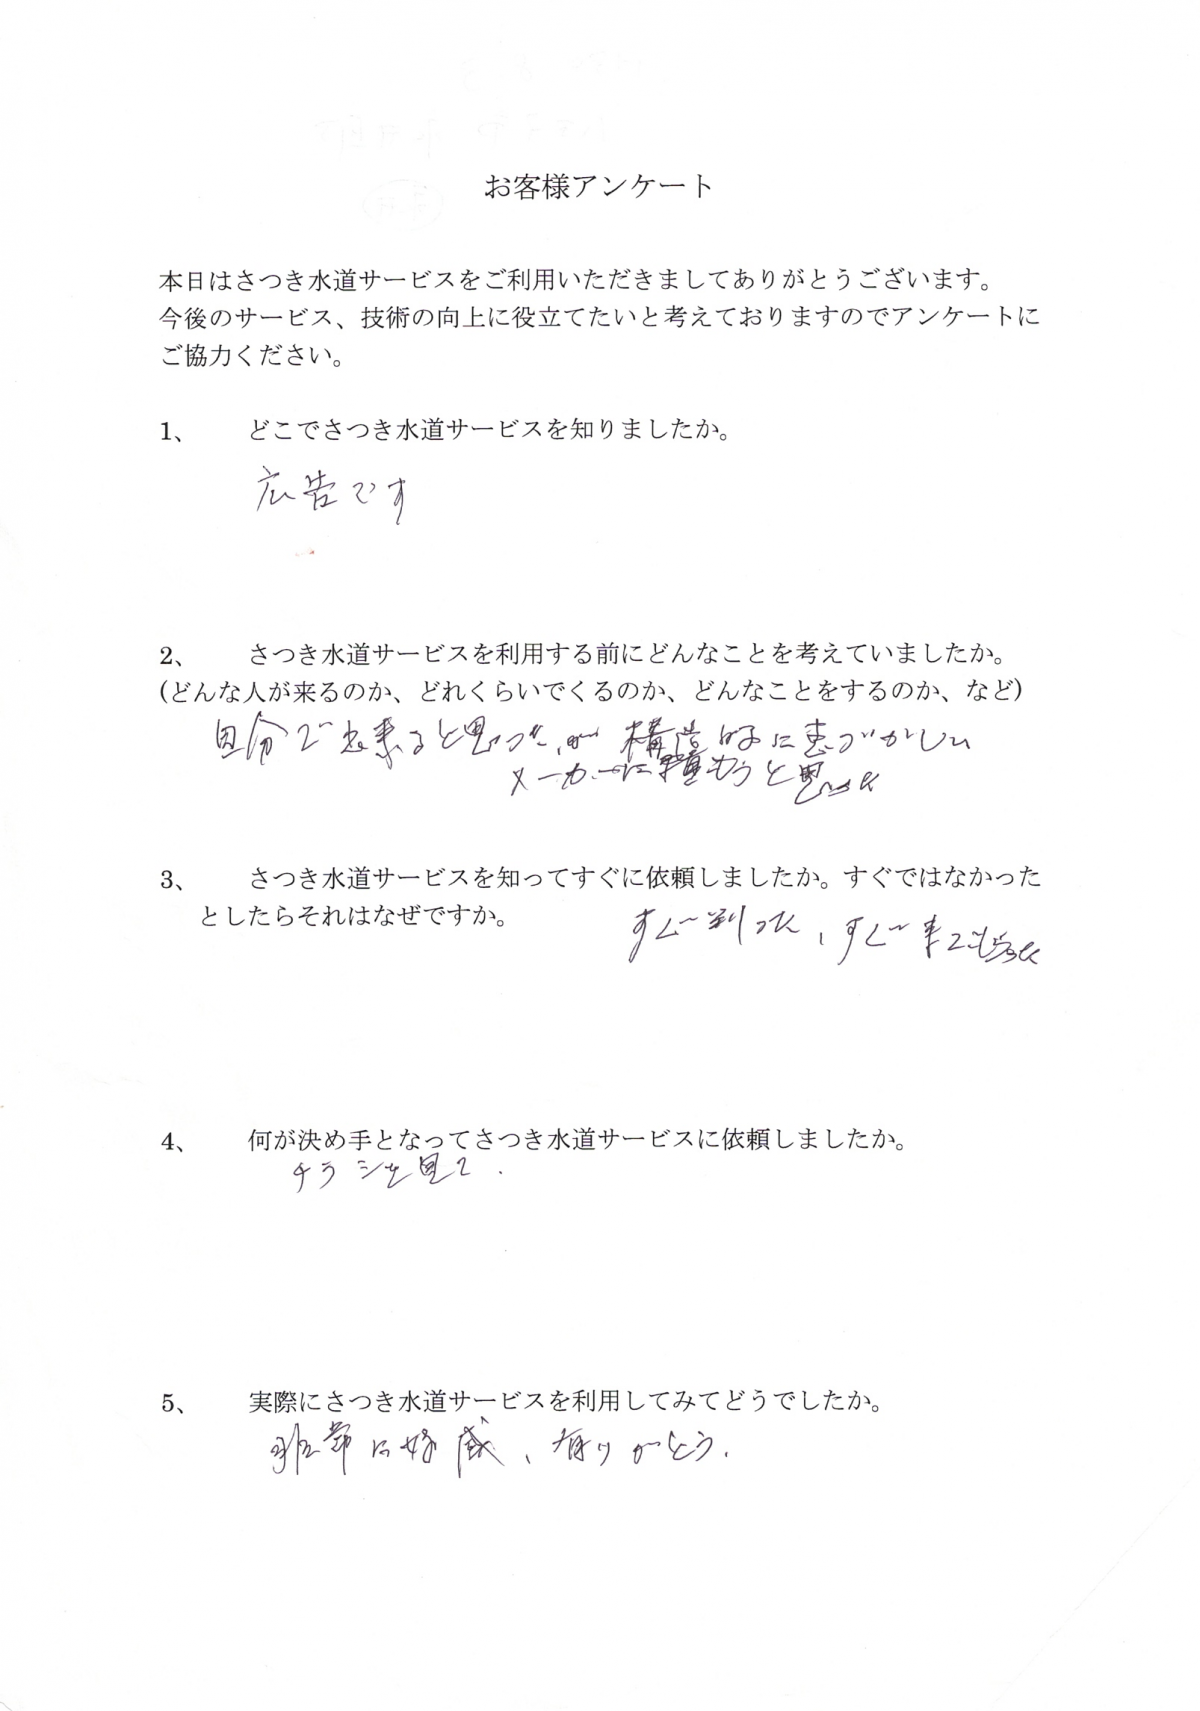 お客様アンケート
本日はさつき水道サービスをご利用いただきましてありがとうございます。
今後のサービス、技術の向上に役立てたいと考えておりますのでアンケートに
ご協力ください。
1、 どこでさつき水道サービスを知りましたか。
広告です
2、 さつき水道サービスを利用する前にどんなことを考えていましたか。
(どんな人が来るのか、どれくらいでくるのか、どんなことをするのか、など)
自分で出来ると思ったが 構造的に
メーカーに と思った
3、 さつき水道サービスを知ってすぐに依頼しましたか。すぐではなかった
としたらそれはなぜですか。
すぐ判った、すぐ来てもらった
4、 何が決め手となってさつき水道サービスに依頼しましたか。
チラシを見て.
5、 実際にさつき水道サービスを利用してみてどうでしたか。
非常に好感、有りがとう.